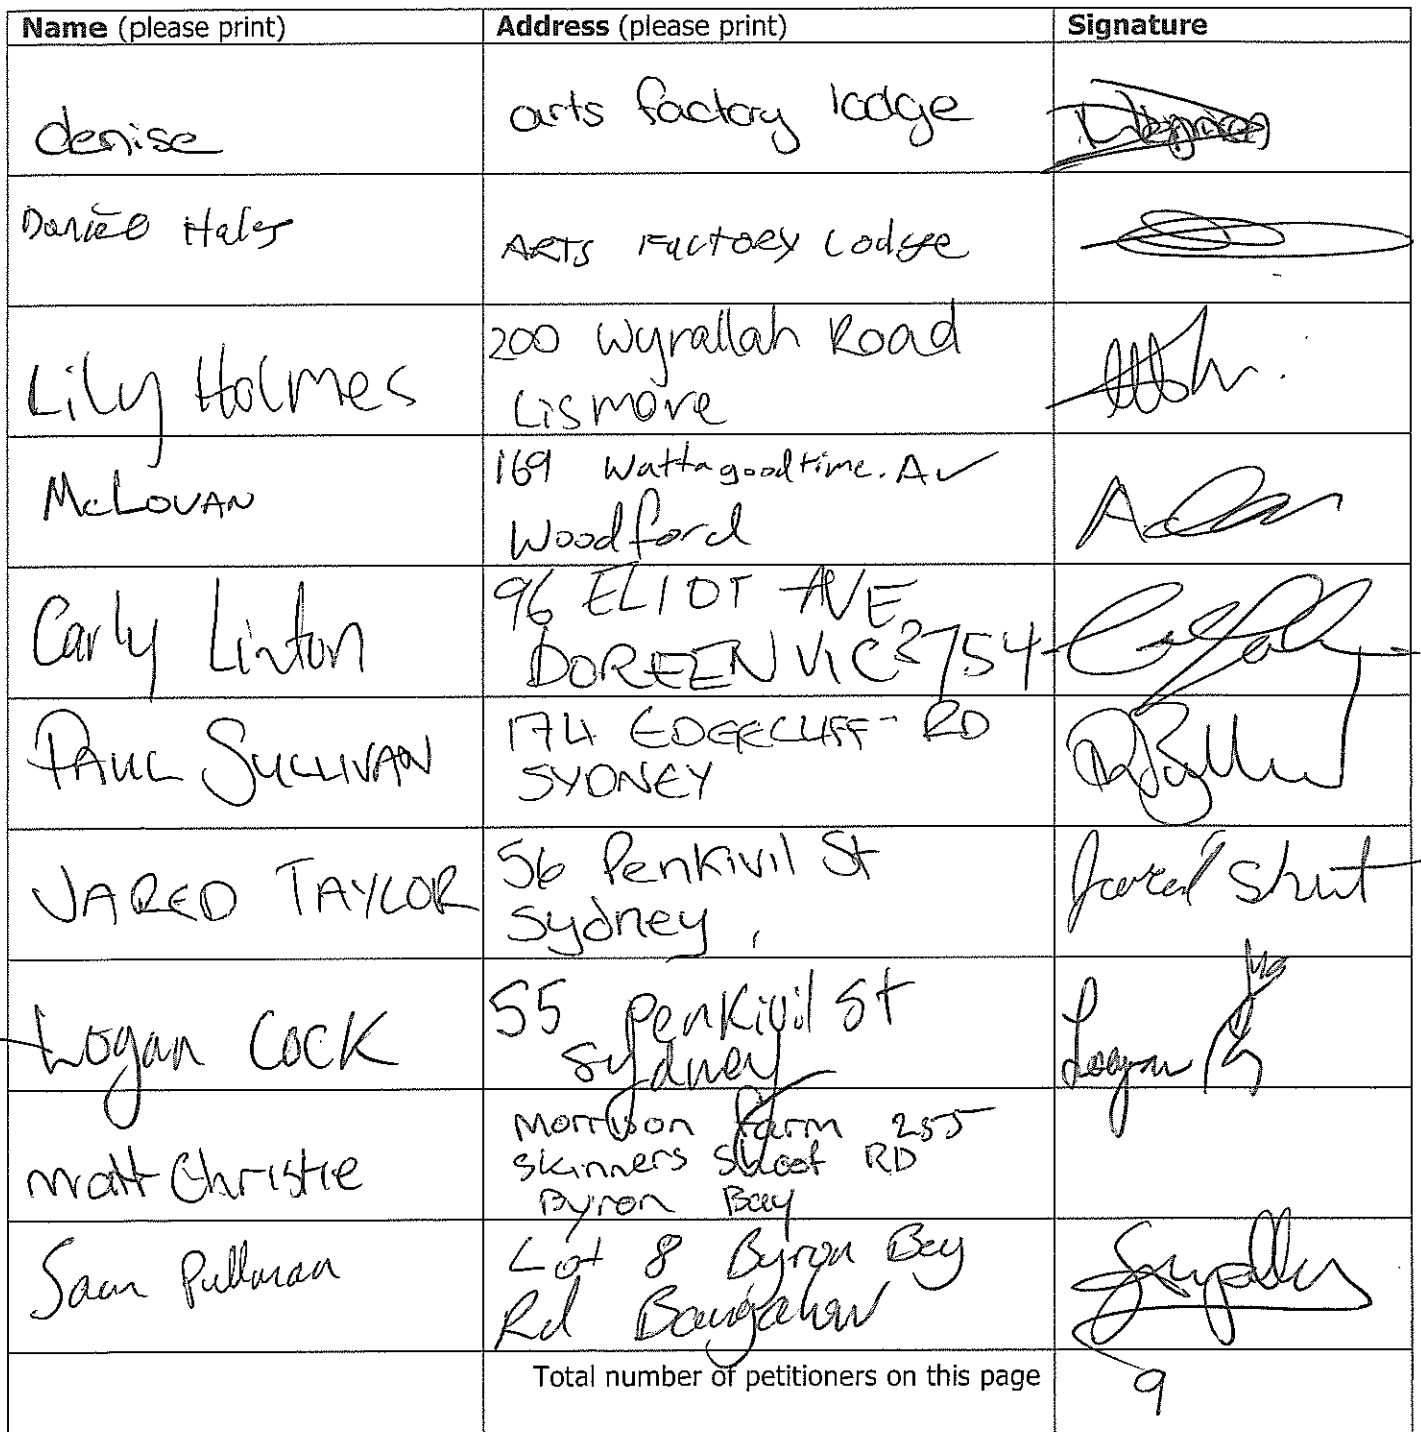 Name (please print) Address (please print) Signature
denise arts factory lodge
Daniel Hales ARTS FACTORY Lodge
Lily Holmes 200 Wyrallah Road
Lismore
McLOVAN 169 Wattagoodtime. Av
Woodford
Carly Linton 96 ELIOT AVE
DOREEN VIC 3754
PAUL SULLIVAN 174 EDGECLIFF RD
SYDNEY
JARED TAYLOR 56 Penkivil St
Sydney,
Logan COCK 55 Penkivil St
Sydney
Logan
Matt Christie Morrison farm 255
Skinners Shoot RD
Byron Bay
Sam Pullman Lot 8 Byron Bay
Rd Bangalow
Total number of petitioners on this page 9